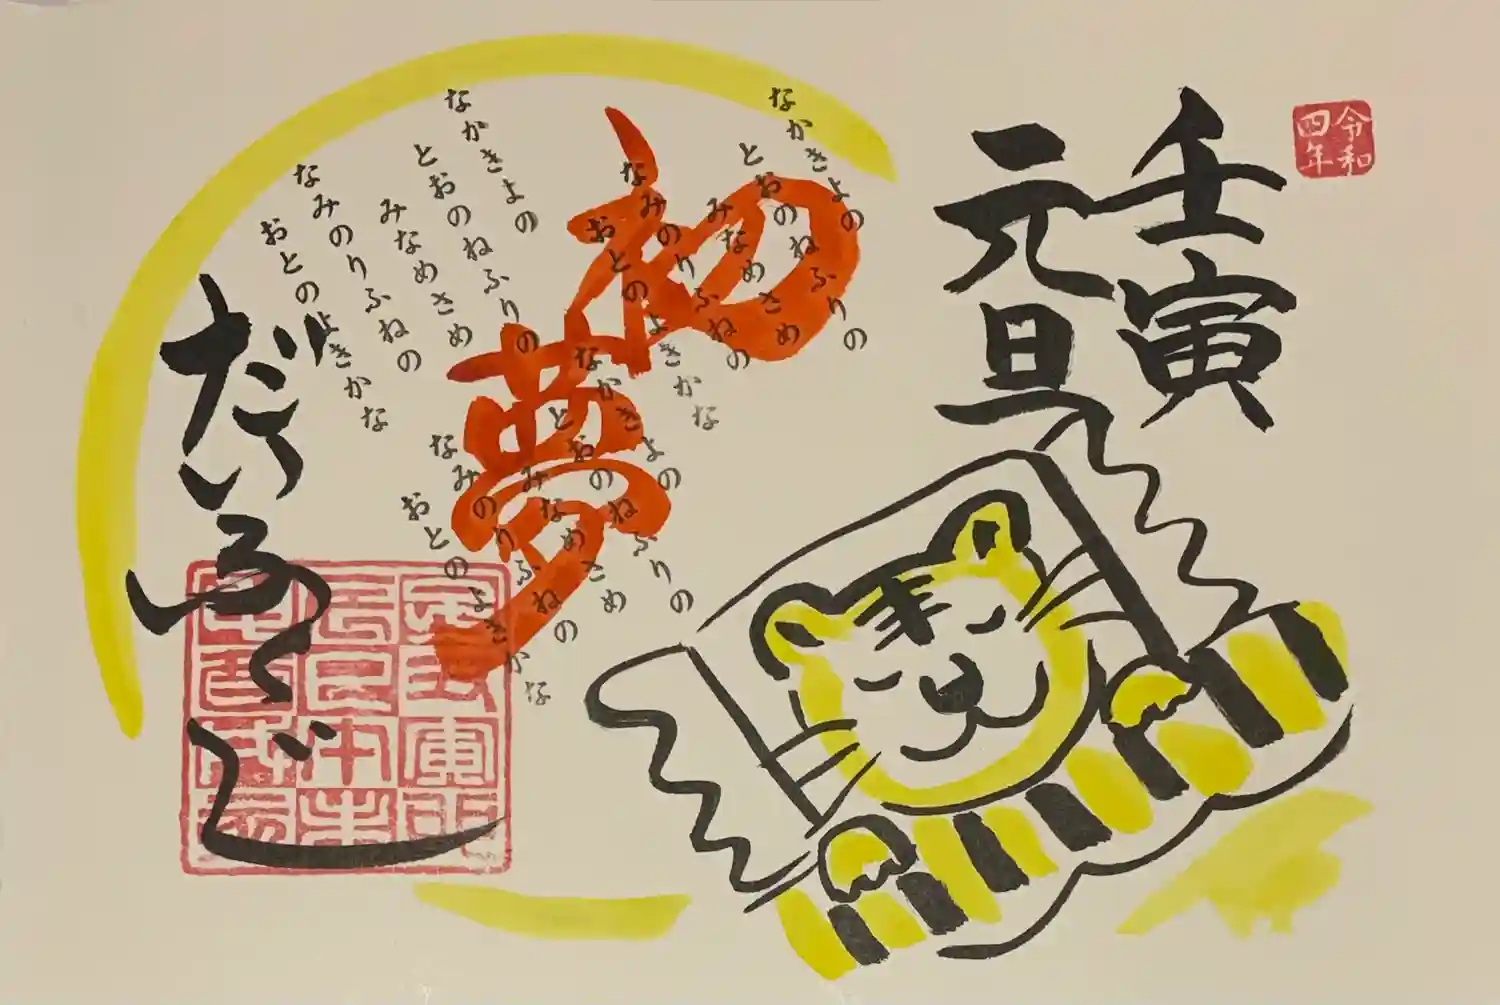 令和
四年
壬寅
元旦
初夢
なかきよの
とおのねふりの
みなめさめ
なみのりふねの
おとのよきかな
なかきよの
とおのねふりの
みなめさめ
なみのりふねの
おとのよきかな
なかきよの
とおのねふりの
みなめさめ
なみのりふねの
おとのよきかな
だいふくじ